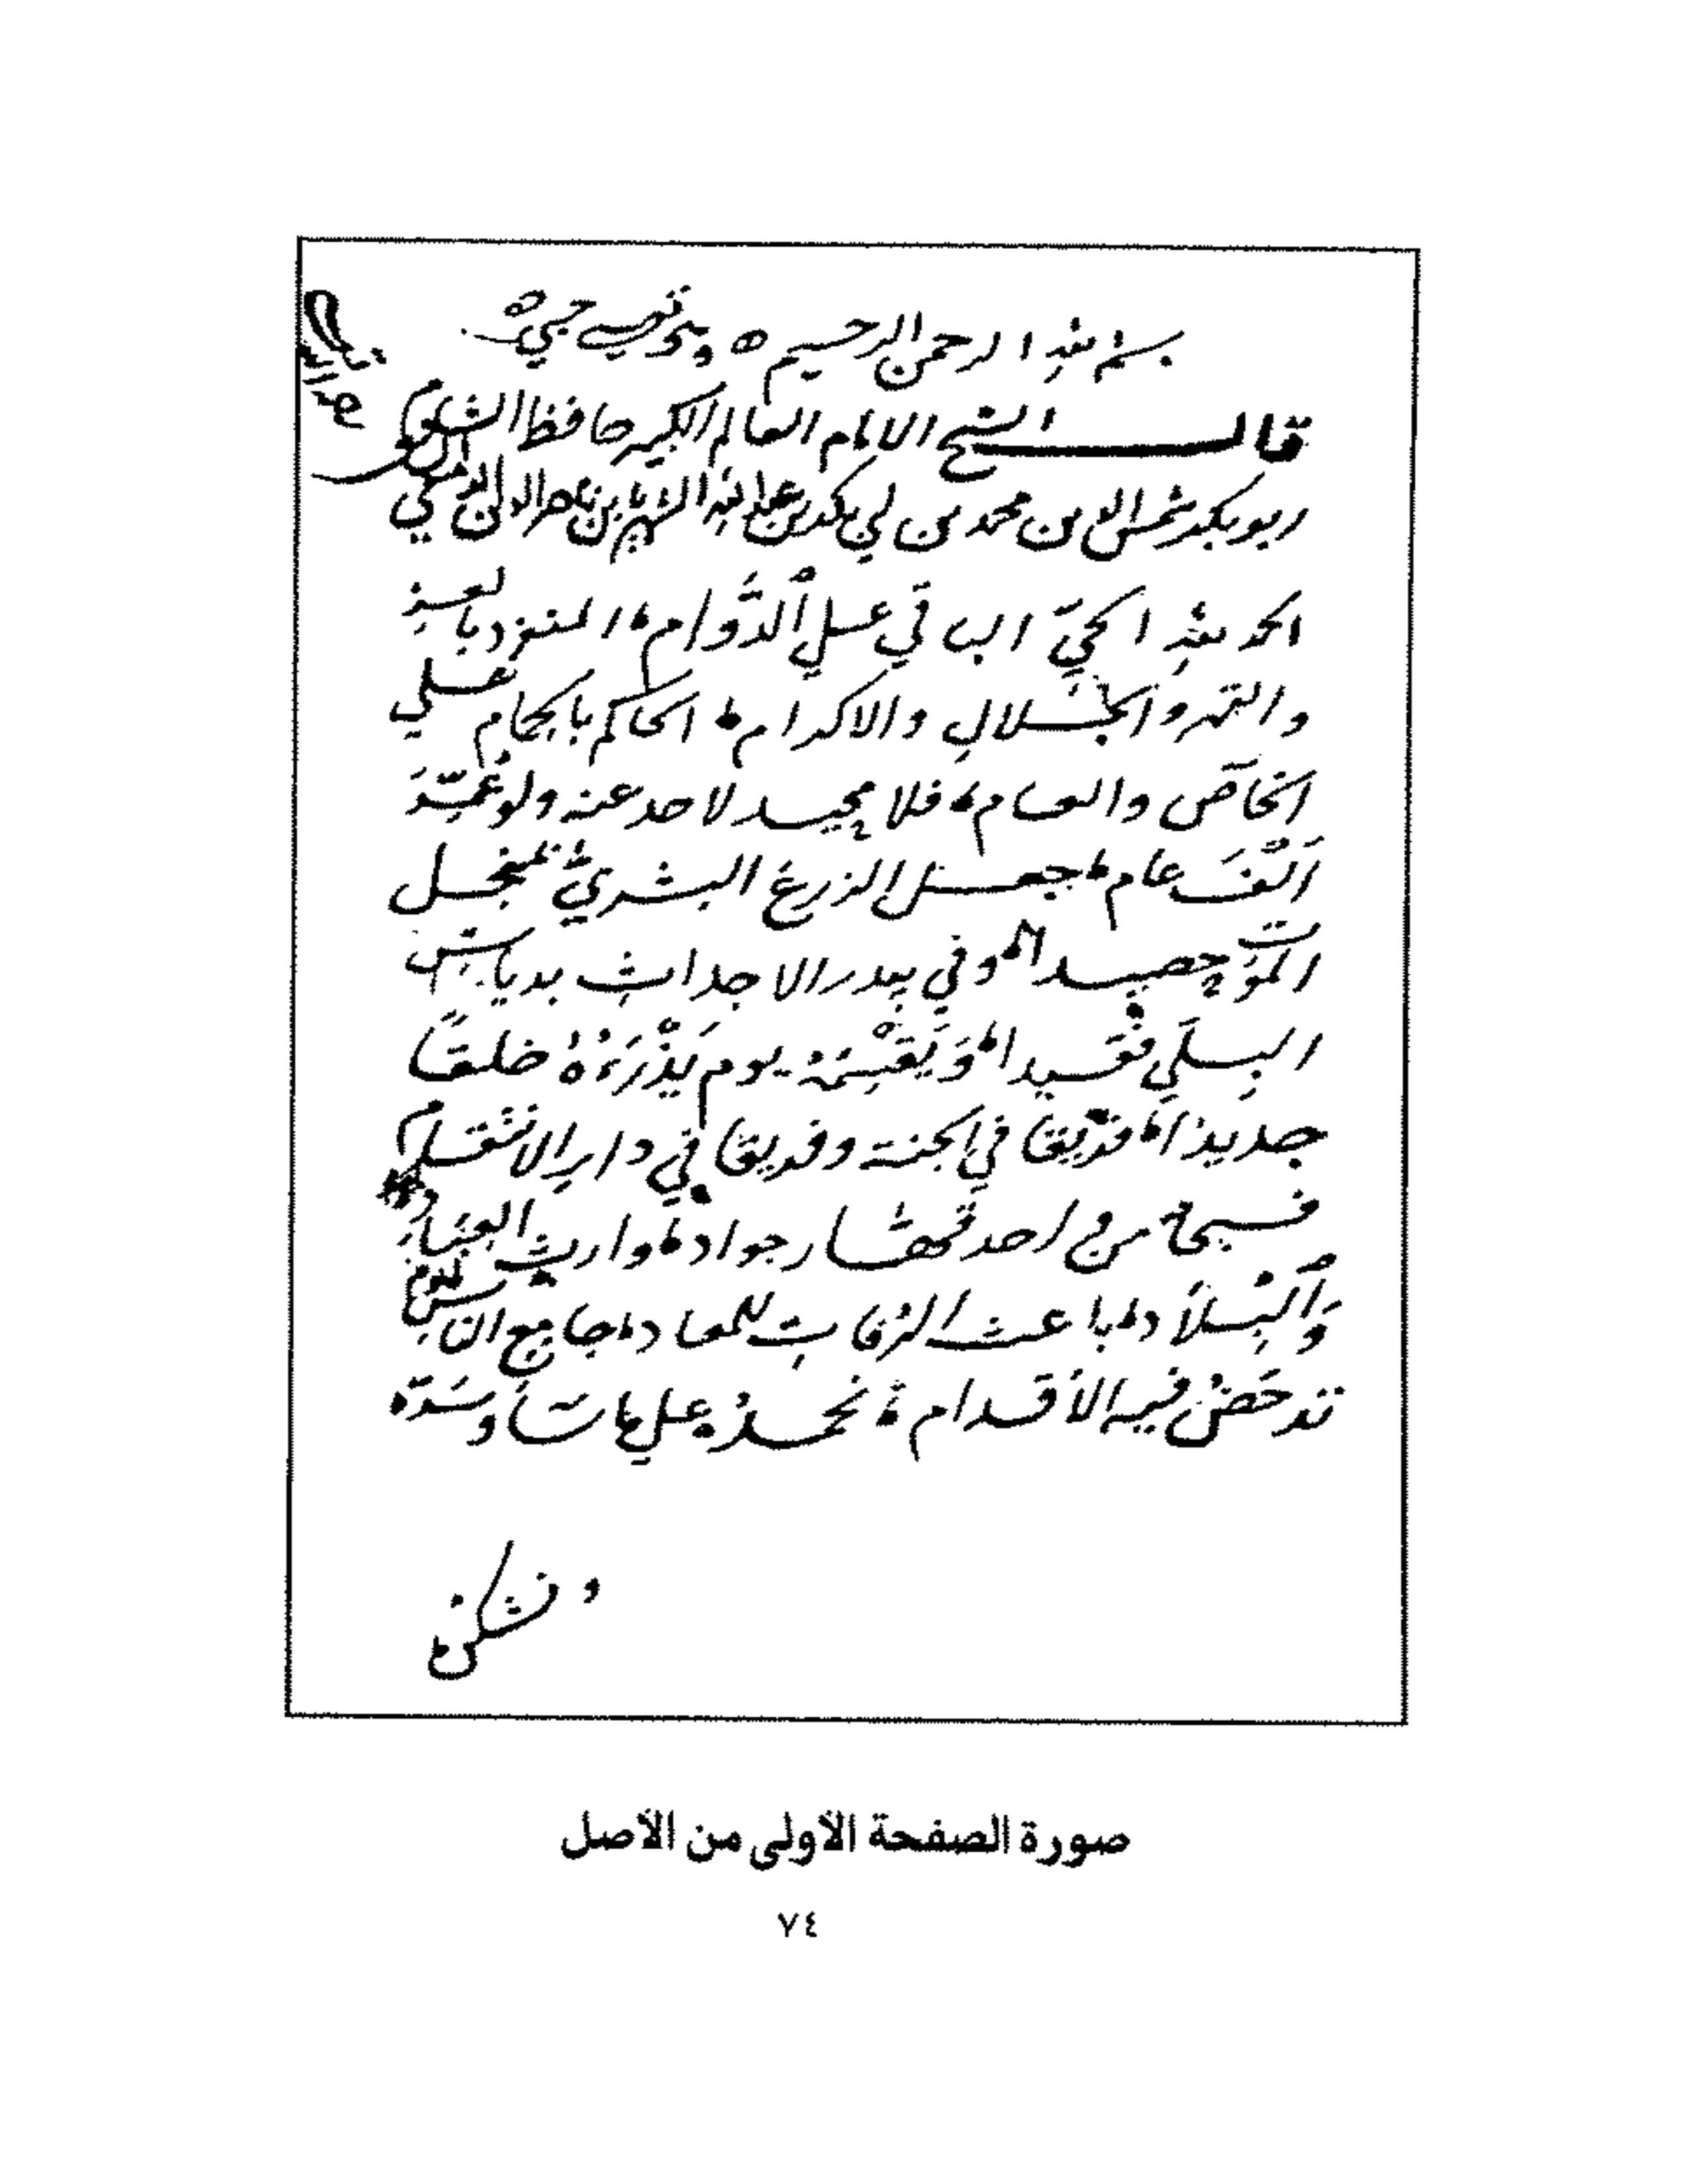 بسم الله الرحمن الرحيم ه وبه توفيقي ه
قال الشيخ الامام العالم الكبير حافظ الشام
ابو بكر شمس الدين محمد بن ابي بكر بن عبد الله الشهير بابن ناصر الدين الدمشقي
الحمد لله الحيّ الباقي علي الدَّوام، المنفرد بالعز
والقهر والجلالِ والاكرام، الحاكم بالحِمام علي
الخاصّ والعام، فلا محيد لاحد عنه ولو عُمِّرَ
اَلْفَ عام، جعل الزرعَ البشريَّ بمنجل
الموتِ حصيدا، وفي بيدر الاجداثِ بدياسِ
البِلَي فقيدا، وَيَقْسِمُهُ يوم يَذْرَءُهُ خلقًا
جديدا، فريقا في الجنة وفريقا في دار الانتقام
فسبحانه من احد قهّار جواد، وارث العِبَادِ
وَاَلْبِلاَد، باعث الرُّفاتِ للمعاد، جامع الناسِ ليوم
تدحَضُ فيه الأقدام، نحمدُه علي ما شاءَ وسَرَّهُ
و نشكره
صورة الصفحة الأولى من الأصل
٧٤